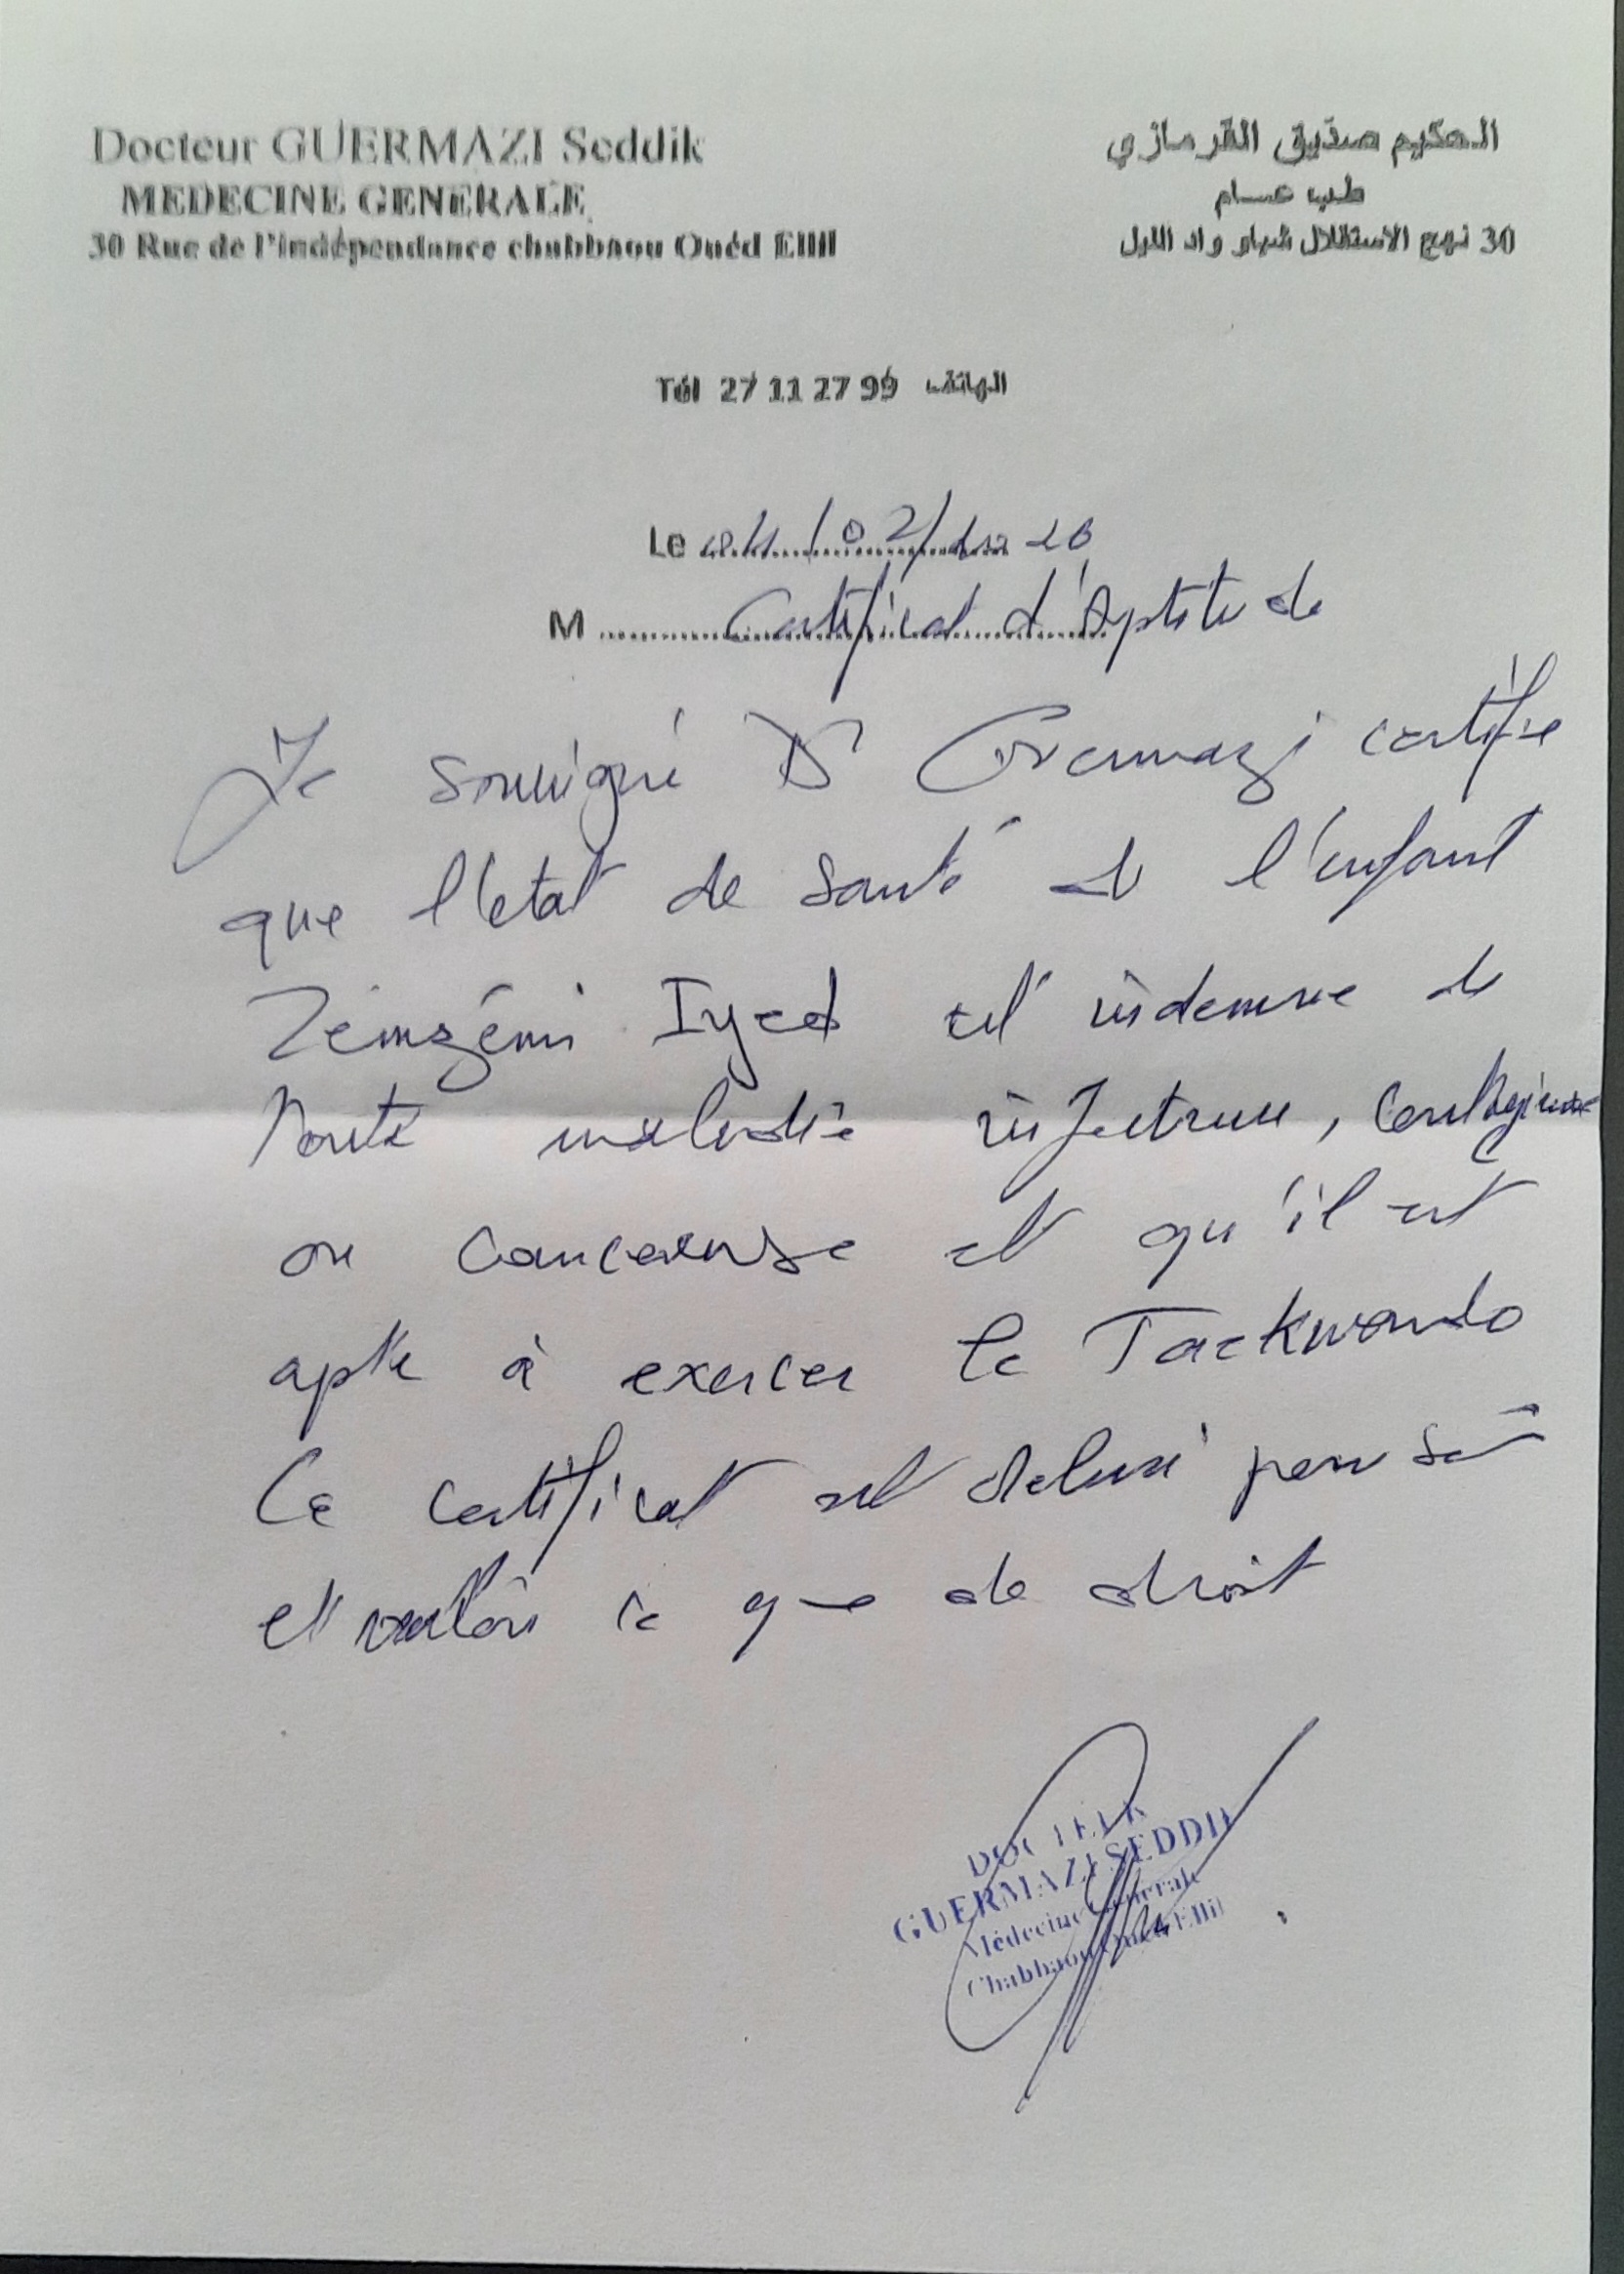 Docteur GUERMAZI Seddik
MEDECINE GENERALE
30 Rue de l'indépendance chabbaou Ouéd Ellil
الحكيم صديق القرمازي
طب عام
30 نهج الاستقلال شباو واد الليل
Tél 27 11 27 99 الهاتف
Le 02/
M Certificat d'Aptitude
Je soussigné Dr Guermazi certifie
que l'état de santé de l'enfant
Zemzemi Iyed est indemne de
toute maladie infectieuse, contagieuse
ou cancereuse et qu'il est
apte à exercer le Taekwondo
Ce certificat est delivré pour
et valoir ce que de droit
DOCTEUR
GUERMAZI SEDDIK
Médecine Générale
Chabbaou Oued Ellil